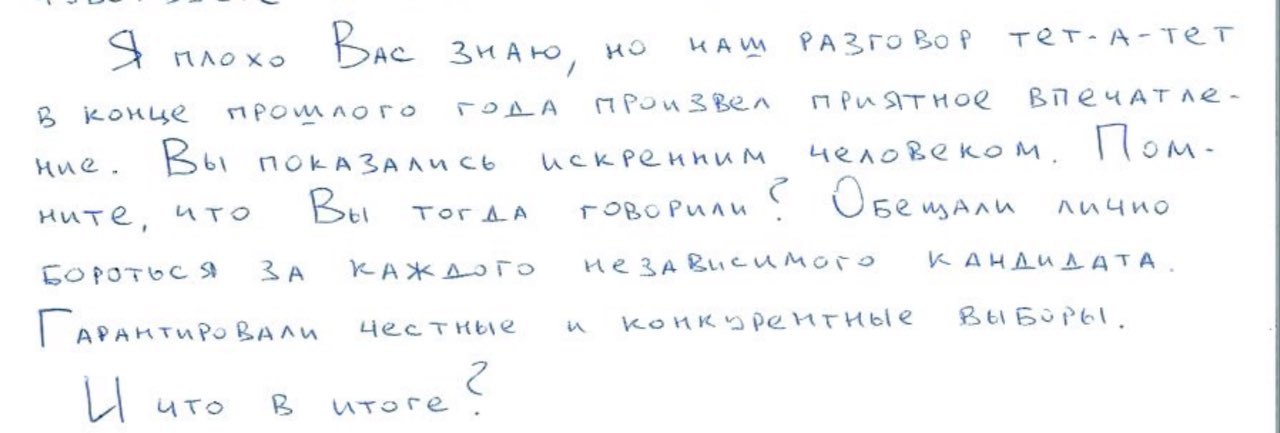 Я плохо Вас знаю, но наш разговор тет-а-тет
в конце прошлого года произвел приятное впечатле-
ние. Вы показались искренним человеком. Пом-
ните, что Вы тогда говорили? Обещали лично
бороться за каждого независимого кандидата.
Гарантировали честные и конкурентные выборы.
И что в итоге?